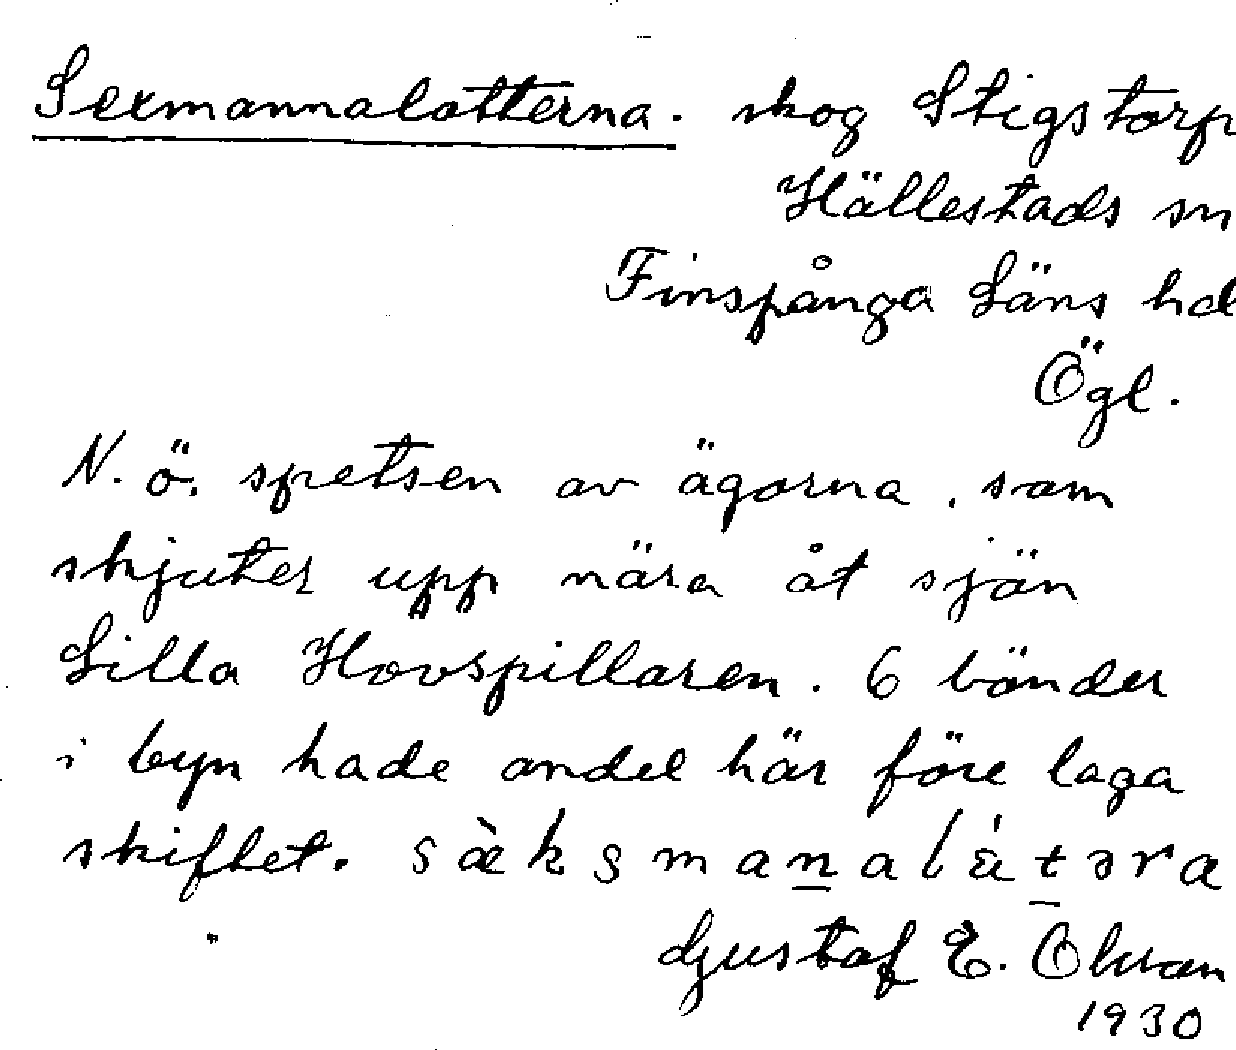 Sexmannalotterna. skog Stigstorp
Hällestads sn
Finspånga Läns hd
Ögl.
N. ö. spetsen av ägorna, som
skjuter upp nära åt sjön
Lilla Hovspillaren. 6 bönder
i byn hade andel här före laga
skiftet. sàksmanalåtəra
Gustaf E. Ohman
1930